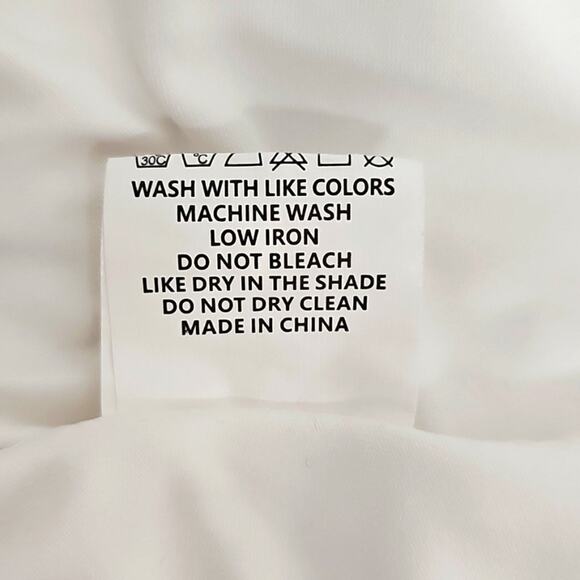 30C °C
WASH WITH LIKE COLORS
MACHINE WASH
LOW IRON
DO NOT BLEACH
LIKE DRY IN THE SHADE
DO NOT DRY CLEAN
MADE IN CHINA